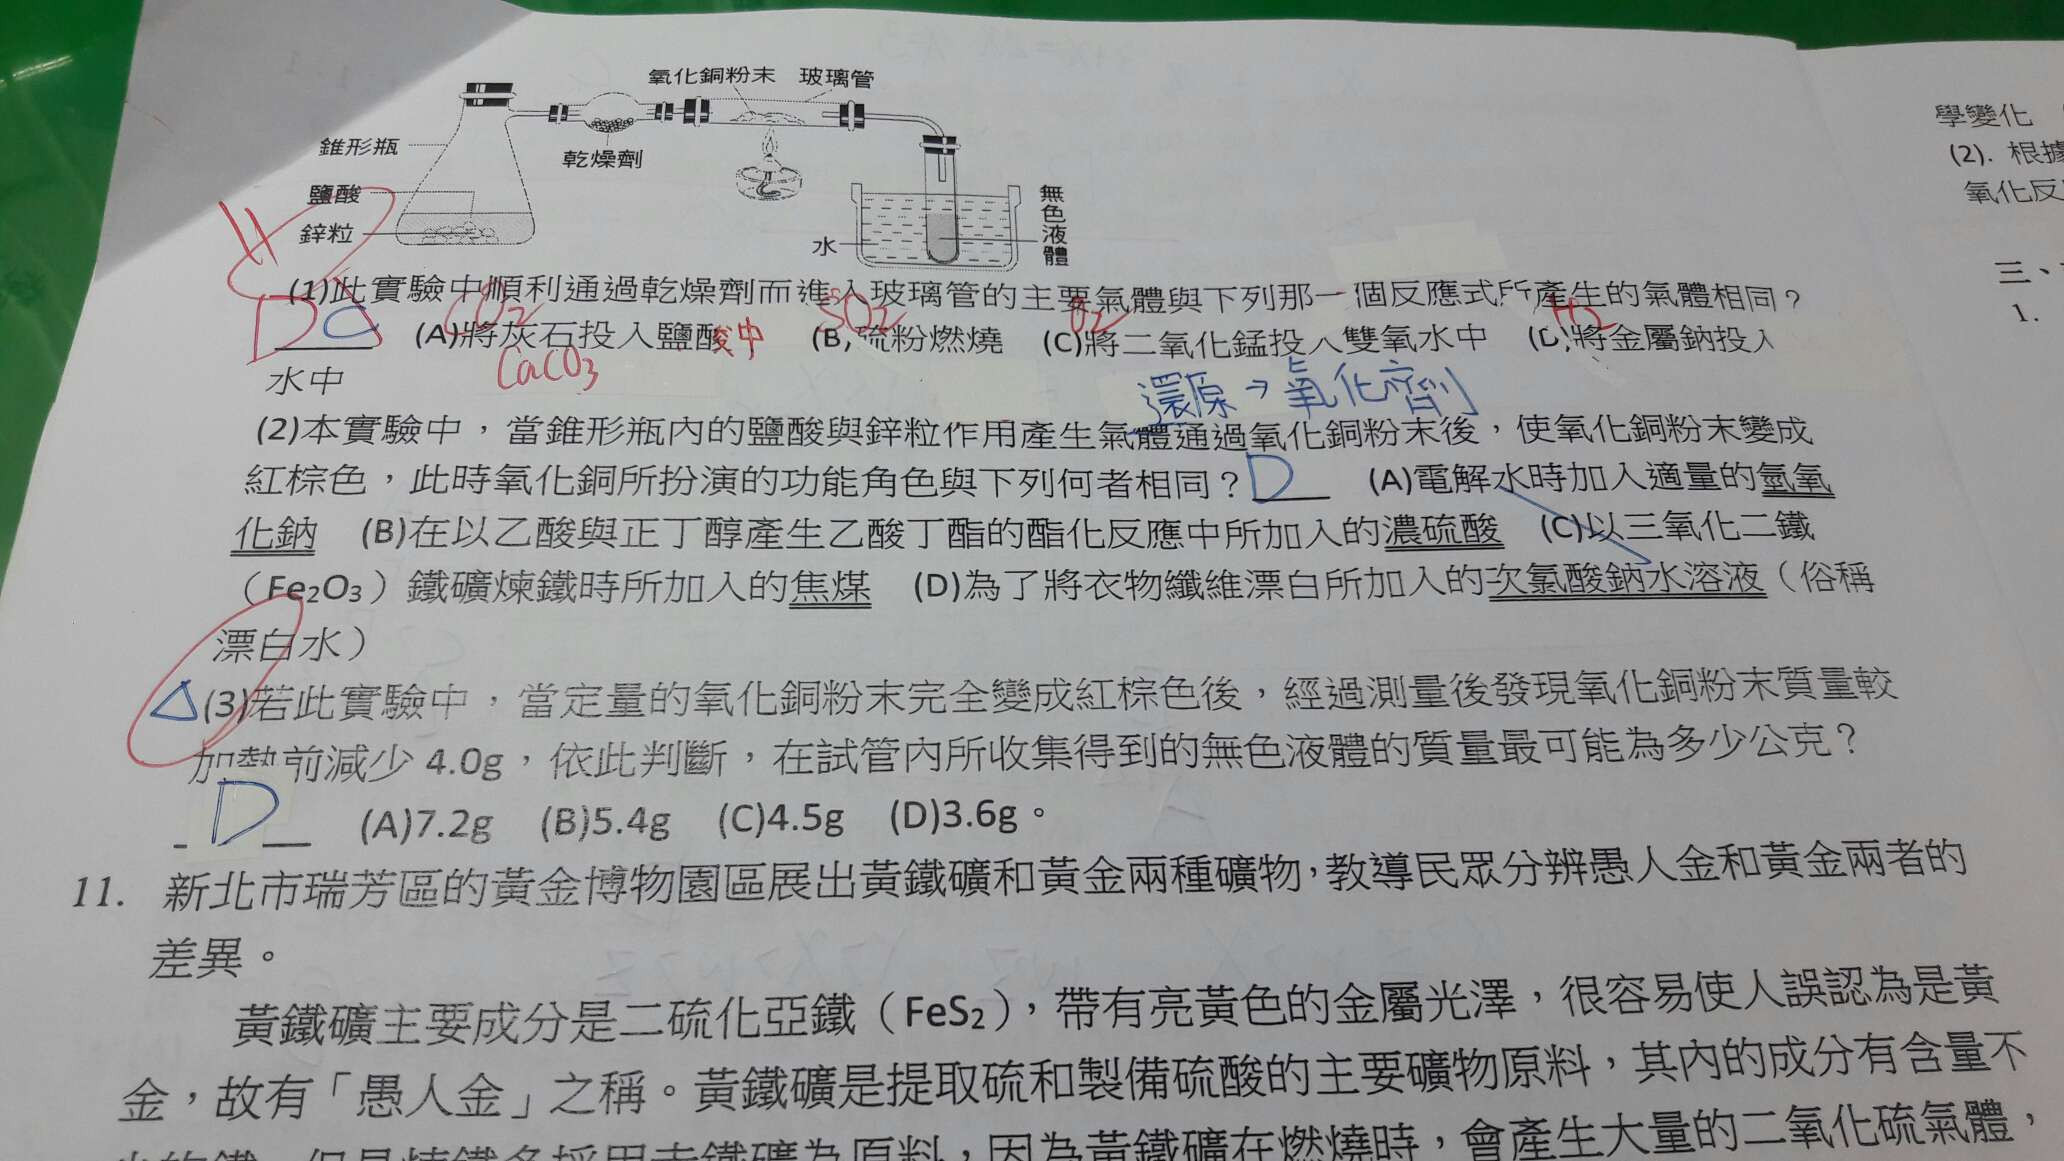 氧化銅粉末 玻璃管
錐形瓶
乾燥劑
鹽酸
鋅粒
水
無色液體
(1)此實驗中順利通過乾燥劑而進入玻璃管的主要氣體與下列那一個反應式所產生的氣體相同？
CO2 SO2 O2 H2
D C (A)將灰石投入鹽酸中 (B)硫粉燃燒 (C)將二氧化錳投入雙氧水中 (D)將金屬鈉投入
CaCO3
水中
還原→氧化劑
(2)本實驗中，當錐形瓶內的鹽酸與鋅粒作用產生氣體通過氧化銅粉末後，使氧化銅粉末變成
紅棕色，此時氧化銅所扮演的功能角色與下列何者相同？D (A)電解水時加入適量的氫氧
化鈉 (B)在以乙酸與正丁醇產生乙酸丁酯的酯化反應中所加入的濃硫酸 (C)以三氧化二鐵
（Fe₂O₃）鐵礦煉鐵時所加入的焦煤 (D)為了將衣物纖維漂白所加入的次氯酸鈉水溶液（俗稱
漂白水）
△(3)若此實驗中，當定量的氧化銅粉末完全變成紅棕色後，經過測量後發現氧化銅粉末質量較
加熱前減少 4.0g，依此判斷，在試管內所收集得到的無色液體的質量最可能為多少公克？
D (A)7.2g (B)5.4g (C)4.5g (D)3.6g。
11. 新北市瑞芳區的黃金博物園區展出黃鐵礦和黃金兩種礦物，教導民眾分辨愚人金和黃金兩者的
差異。
黃鐵礦主要成分是二硫化亞鐵（FeS₂），帶有亮黃色的金屬光澤，很容易使人誤認為是黃
金，故有「愚人金」之稱。黃鐵礦是提取硫和製備硫酸的主要礦物原料，其內的成分有含量不
少的鐵，但是煉鐵多採用赤鐵礦為原料，因為黃鐵礦在燃燒時，會產生大量的二氧化硫氣體，
學變化
(2). 根據
氧化反
三、
1.